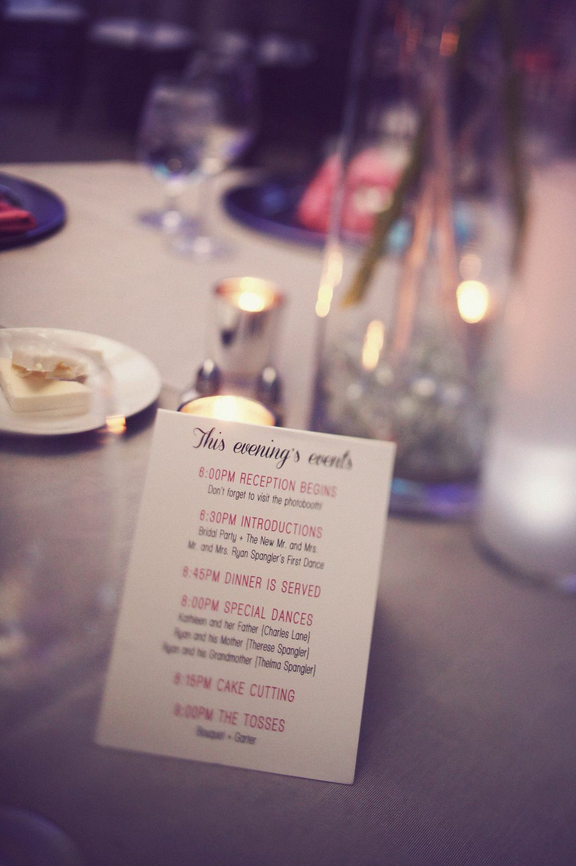 This evening's events
6:00PM RECEPTION BEGINS
Don't forget to visit the photobooth!
6:30PM INTRODUCTIONS
Bridal Party + The New Mr. and Mrs.
Mr. and Mrs. Ryan Spangler's First Dance
6:45PM DINNER IS SERVED
8:00PM SPECIAL DANCES
Kathleen and her Father [Charles Lane]
Ryan and his Mother [Therese Spangler]
Ryan and his Grandmother [Thelma Spangler]
8:15PM CAKE CUTTING
THE TOSSES
Bouquet + Garter